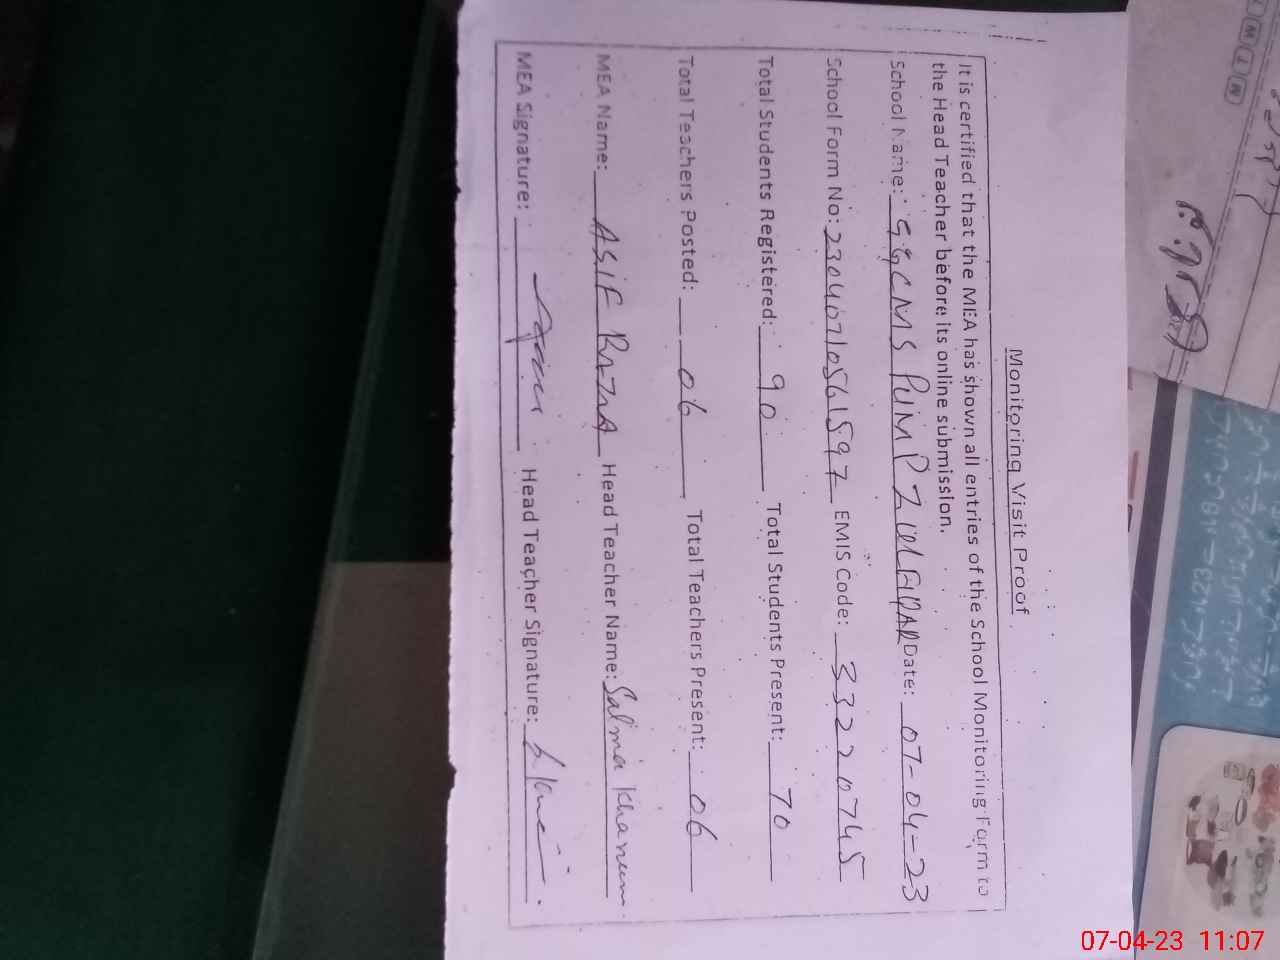 Monitoring Visit Proof
It is certified that the MEA has shown all entries of the School Monitoring Form to
the Head Teacher before its online submission.
School Name: GGCMS PUMP ZAILADAR Date: 07-04-23
School Form No: 230407105615597 EMIS Code: 33220745
Total Students Registered: 90 Total Students Present: 70
Total Teachers Posted: 06 Total Teachers Present: 06
MEA Name: ASIF RAZA Head Teacher Name: Salma Khanum
MEA Signature: Head Teacher Signature:
07-04-23 11:07